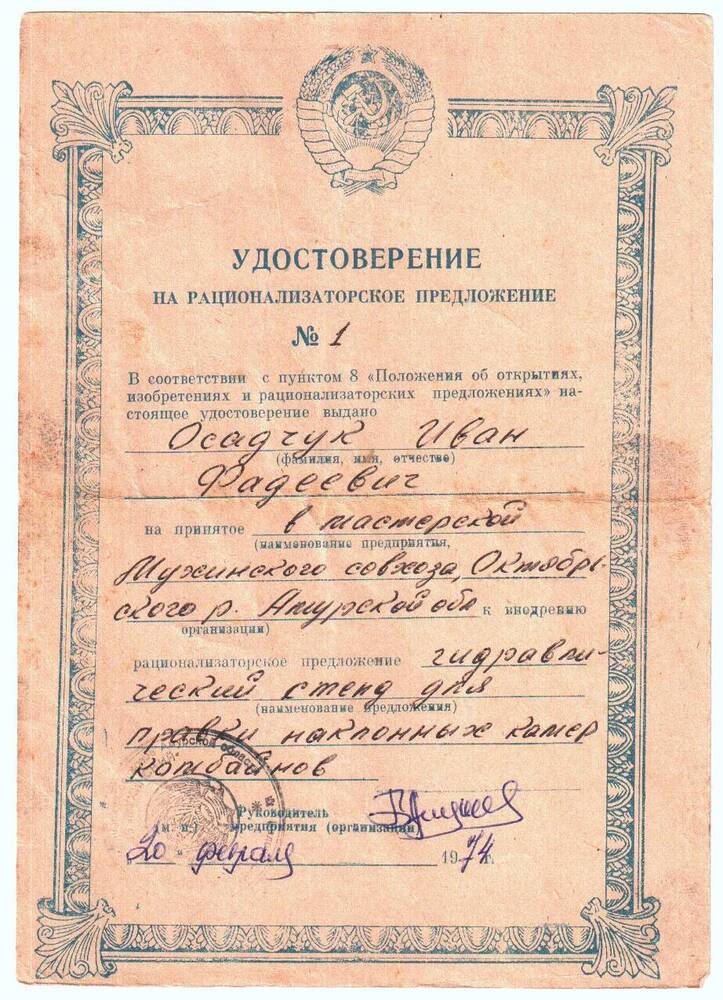 УДОСТОВЕРЕНИЕ
НА РАЦИОНАЛИЗАТОРСКОЕ ПРЕДЛОЖЕНИЕ
№ 1
В соответствии с пунктом 8 «Положения об открытиях,
изобретениях и рационализаторских предложениях» на-
стоящее удостоверение выдано
Осадчук Иван
(фамилия, имя, отчество)
Фадеевич
на принятое в мастерской
(наименование предприятия,
Мухинского совхоза, Октябрь-
ского р. Амурской обл к внедрению
организации)
рационализаторское предложение гидравли-
ческий стенд для
(наименование предложения)
правки наклонных камер
комбайнов
Руководитель
(м. п.) предприятия (организации)
„20" февраля 1974 г.